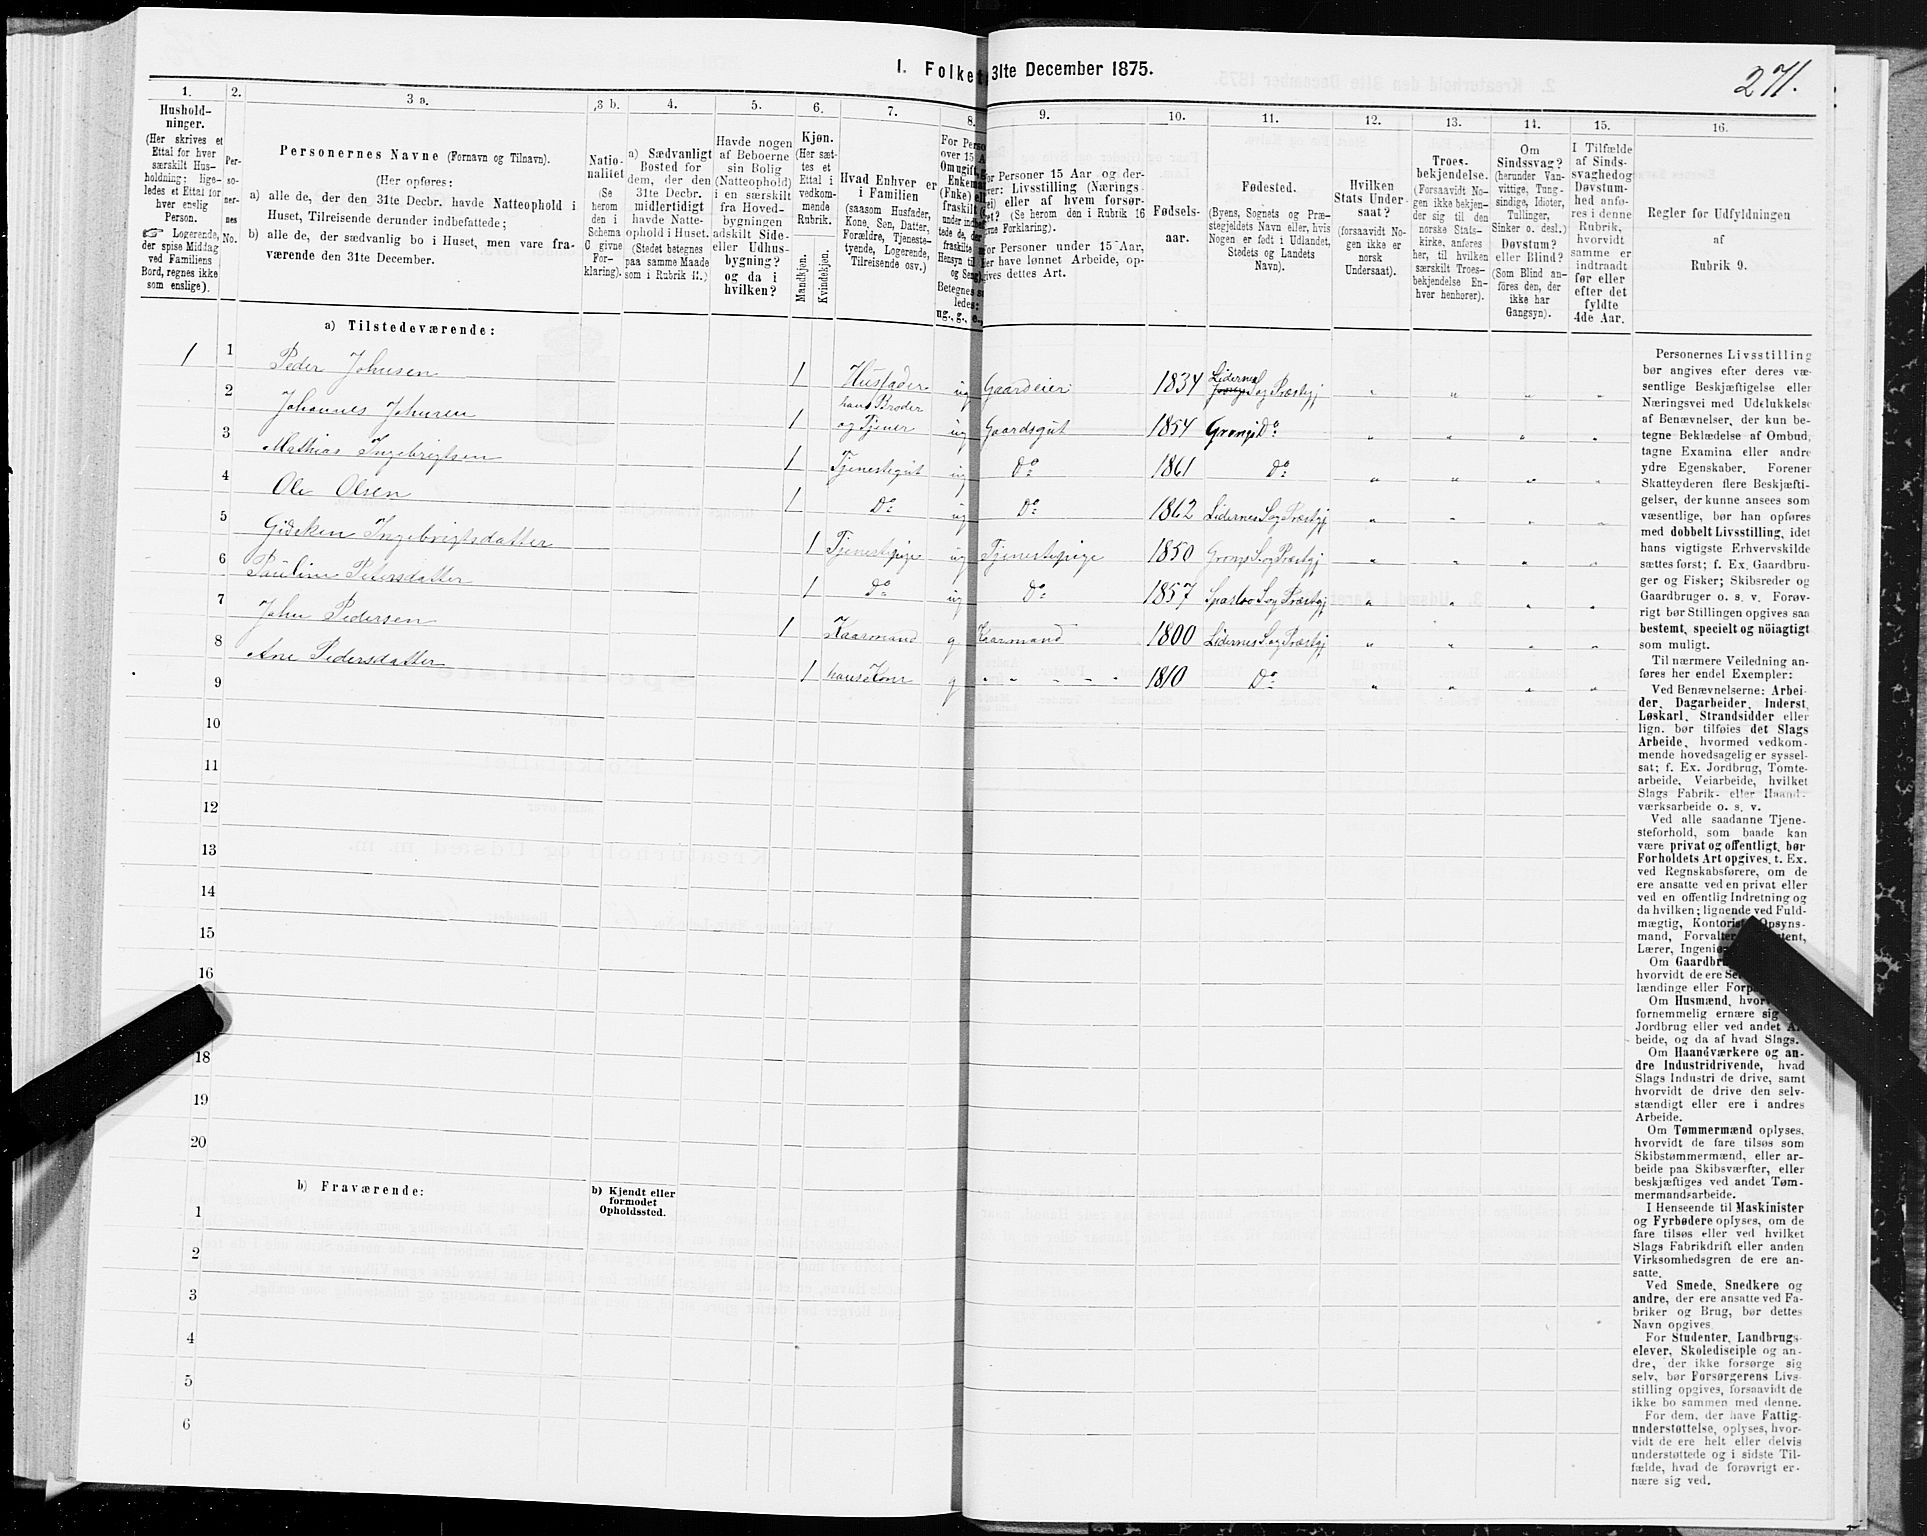 I. Folket 31te December 1875.
271.
1. 2. 3 a. 3 b. 4. 5. 6. 7. 8. 9. 10. 11. 12. 13. 14. 15. 16.
Hushold-
ninger.
(Her skrives et
Ettal for hver
særskilt Hus-
holdning; lige-
ledes et Ettal for
hver enslig
Person.
☞ Logerende,
der spise Middag
ved Familiens
Bord, regnes ikke
som enslige).
Per-
so-
ner-
nes
No.
Personernes Navne (Fornavn og Tilnavn).
(Her opføres:
a) alle de, der den 31te Decbr. havde Natteophold i
Huset, Tilreisende derunder indbefattede;
b) alle de, der sædvanlig bo i Huset, men vare fra-
værende den 31te December.
Natio-
nalitet
(Se
herom
den i
Schema
C givne
For-
klaring).
a) Sædvanligt
Bosted for
dem, der den
31te Decbr.
midlertidigt
havde Natte-
ophold i Huset.
(Stedet betegnes
paa samme Maade
som i Rubrik 11.)
Havde nogen
af Beboerne
sin Bolig
(Natteophold)
i en særskilt
fra Hoved-
bygningen
adskilt Side-
eller Udhus-
bygning?
og da i
hvilken?
Kjøn.
(Her sæt-
tes et
Ettal i
vedkom-
mende
Rubrik.
Mandkjøn.
Kvindekjøn.
Hvad Enhver er
i Familien
(saasom Husfader,
Kone, Søn, Datter,
Forældre, Tjeneste-
tyende, Logerende,
Tilreisende osv.)
For Perso
over 15 A
Om ugift,
Enkeman
(Fnke) ell
fraskilt
under indbe
tede de,
fraskilte
Hensyn til
og Seng)
Betegnes s
ledes:
ug., g., e.,
For Personer 15 Aar og der-
over: Livsstilling (Nærings
vei) eller af hvem forsør-
get? (Se herom den i Rubrik 16
givne Forklaring).
For Personer under 15 Aar,
der have lønnet Arbeide, op-
gives dettes Art.
Fødsels-
aar.
Fødested.
(Byens, Sognets og Præ-
stegjeldets Navn eller, hvis
Nogen er født i Udlandet,
Stedets og Landets
Navn).
Hvilken
Stats Under-
saat?
(forsaavidt No-
gen ikke er
norsk
Undersaat).
Troes-
bekjendelse.
(Forsaavidt No-
gen ikke bekjen-
der sig til den
norske Stats-
kirke, anføres
her, til hvilken
særskilt Troes-
bekjendelse En-
hver henhører).
Om
Sindssvag?
(herunder Van-
vittige, Tung-
sindige, Idioter,
Tullinger,
Sinker o. desl.)
Døvstum?
eller Blind?
(Som Blind an-
føres den, der
ikke har
Gangsyn).
I Tilfælde
af Sinds-
svaghedog
Døvstum-
hed anfø-
res i denne
Rubrik,
hvorvidt
samme er
indtraadt
før eller
efter det
fyldte
4de Aar.
Regler for Udfyldningen
af
Rubrik 9.
a) Tilstedeværende:
1 1 Peder Johnsen 1 Husfader ug Gaardeier 1834 Lidernes S og Præstgj " " " "
2 Johannes Johnsen 1 hans Broder og Tjener ug Gaardsgut 1854 Do " " " "
3 Mathias Ingebrigtsen 1 Tjenestegut ug Do 1861 Do " " " "
4 Ole Olsen 1 Do ug Do 1862 Lidernes S og Præstgj " " " "
5 Gideken Ingebrigtsdatter 1 Tjenestepige ug Tjenestepige 1850 S og Præstgj " " " "
6 Pauline Petersdatter 1 Do ug Do 1857 S og Præstgj " " " "
7 John Pedersen 1 Kaarmand g Kaarmand 1800 Lidernes S og Præstgj " " " "
8 Ane Pedersdatter 1 hans Kone g " " " " " 1810 Do " " " "
9
10
11
12
13
14
15
16
18
19
20
b) Fraværende:
b) Kjendt eller
formodet
Opholdssted.
1
2
3
4
5
6
Personernes Livsstilling
bør angives efter deres væ-
sentlige Beskjæftigelse eller
Næringsvei med Udelukkelse
af Benævnelser, der kun be-
tegne Beklædelse af Ombud,
tagne Examina eller andre
ydre Egenskaber. Forener
Skatteyderen flere Beskjæfti-
gelser, der kunne ansees som
væsentlige, bør han opføres
med dobbelt Livsstilling, idet
hans vigtigste Erhvervskilde
sættes først; f. Ex. Gaardbru-
ger og Fisker; Skibsreder og
Gaardbruger o. s. v. Forøv-
rigt bør Stillingen opgives saa
bestemt, specielt og nöiagtigt
som muligt.
Til nærmere Veiledning an-
føres her endel Exempler:
Ved Benævnelserne: Arbei-
der, Dagarbeider, Inderst,
Løskarl, Strandsidder eller
lign. bør tilføies det Slags
Arbeide, hvormed vedkom-
mende hovedsagelig er syssel-
sat; f. Ex. Jordbrug, Tomte-
arbeide, Veiarbeide, hvilket
Slags Fabrik- eller Haand-
værksarbeide o. s. v.
Ved alle saadanne Tjene-
steforhold, som baade kan
være privat og offentligt, bør
Forholdets Art opgives, t. Ex.
ved Regnskabsførere, om de
ere ansatte ved en privat eller
ved en offentlig Indretning og
da hvilken; lignende ved Fuld-
mægtig, Kontorist, Opsyns-
mand, Forvalter, tent,
Lærer, Ingeniø
Om Gaardbr
hvorvidt de ere Se
lændinge eller Forp
Om Husmænd, hvor
fornemmelig ernære sig
Jordbrug eller ved andet Ar-
beide, og da af hvad Slags.
Om Haandværkere og an-
dre Industridrivende, hvad
Slags Industri de drive, samt
hvorvidt de drive den selv-
stændigt eller ere i andres
Arbeide.
Om Tømmermænd oplyses,
hvorvidt de fare tilsøs som
Skibstømmermænd, eller ar-
beide paa Skibsværfter, eller
beskjæftiges ved andet Tøm-
mermandsarbeide.
I Henseende til Maskinister
og Fyrbødere oplyses, om de
fare tilsøs eller ved hvilket
Slags Fabrikdrift eller anden
Virksomhedsgren de ere an-
satte.
Ved Smede, Snedkere og
andre, der ere ansatte ved Fa-
briker og Brug, bør dettes
Navn opgives.
For Studenter, Landbrugs-
elever, Skoledisciple og an-
dre, der ikke forsørge sig
selv, bør Forsørgerens Livs-
stilling opgives, forsaavidt de
ikke bo sammen med denne.
For dem, der have Fattig-
understøttelse, oplyses, hvor-
vidt de ere helt eller delvis
understøttede og i sidste Til-
fælde, hvad de forøvrigt er-
nære sig ved.